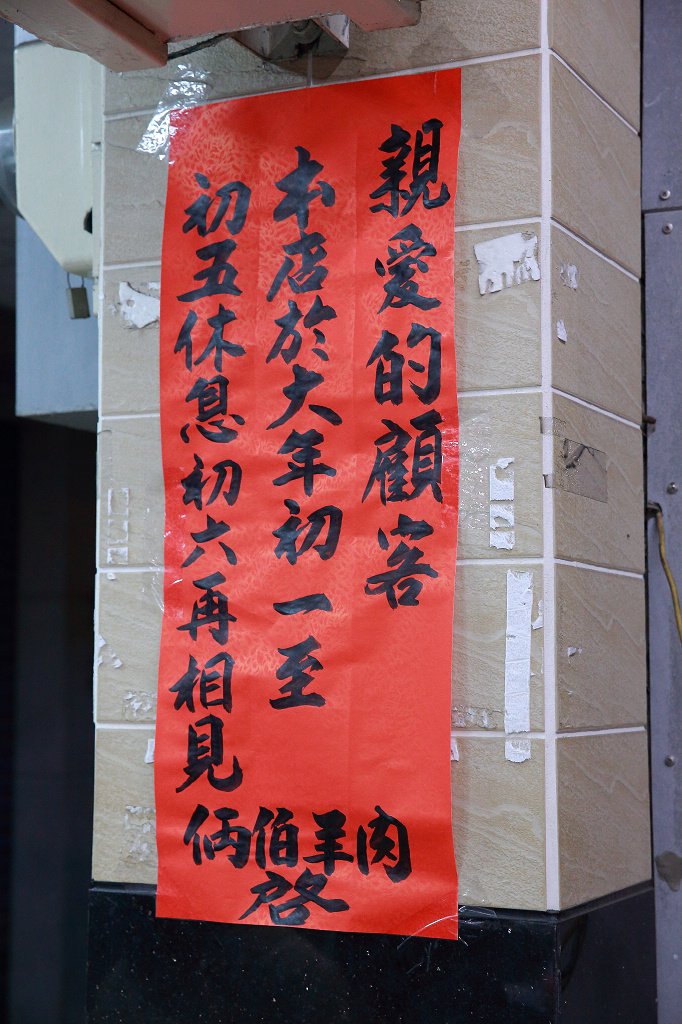 親愛的顧客
本店於大年初一至
初五休息初六再相見
俩伯羊肉
啓